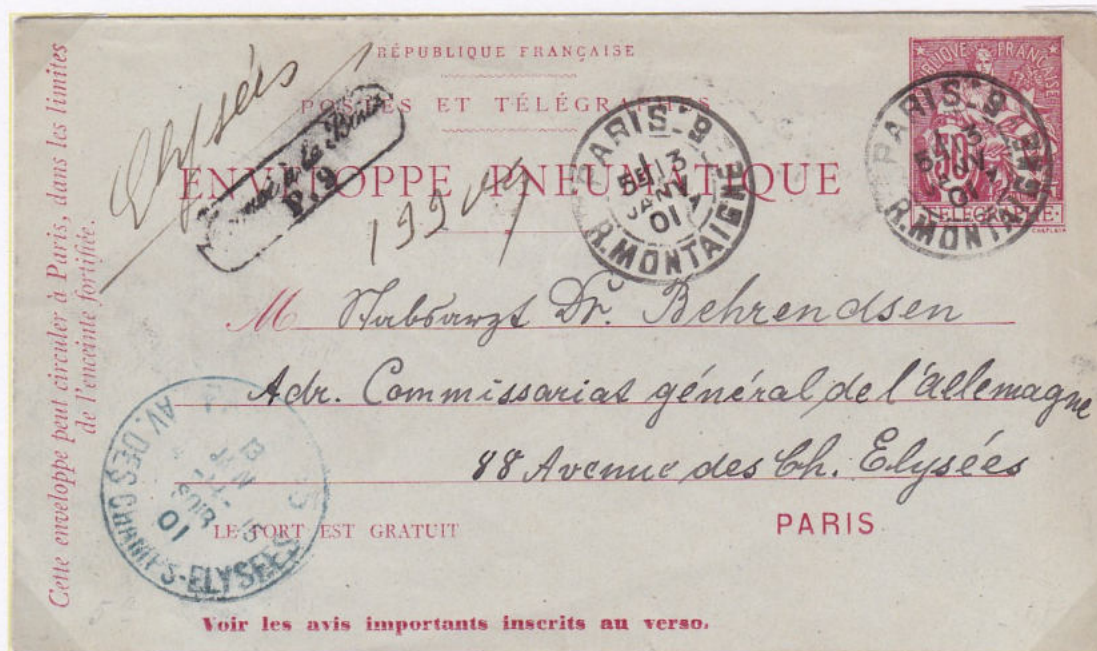 Cette enveloppe peut circuler à Paris, dans les limites
de l'enceinte fortifiée.
Elysées
RÉPUBLIQUE FRANÇAISE
POSTES ET TÉLÉGRAPHES
ENVELOPPE PNEUMATIQUE
à la Boîte
P. 9
199
PARIS_9
13
JANV
01
R. MONTAIGNE
RÉPUBLIQUE FRANÇAISE
TÉLÉGRAPHE
CHAPLAIN
PARIS_9
13
01
R. MONTAIGNE
M Stabsarzt Dr. Behrendsen
Adr. Commissariat général de l'Allemagne
88 Avenue des Ch. Elysées
PARIS
LE PORT EST GRATUIT
AV. DES CHAMPS-ELYSÉES
13
JANV
SOIR
01
Voir les avis importants inscrits au verso.